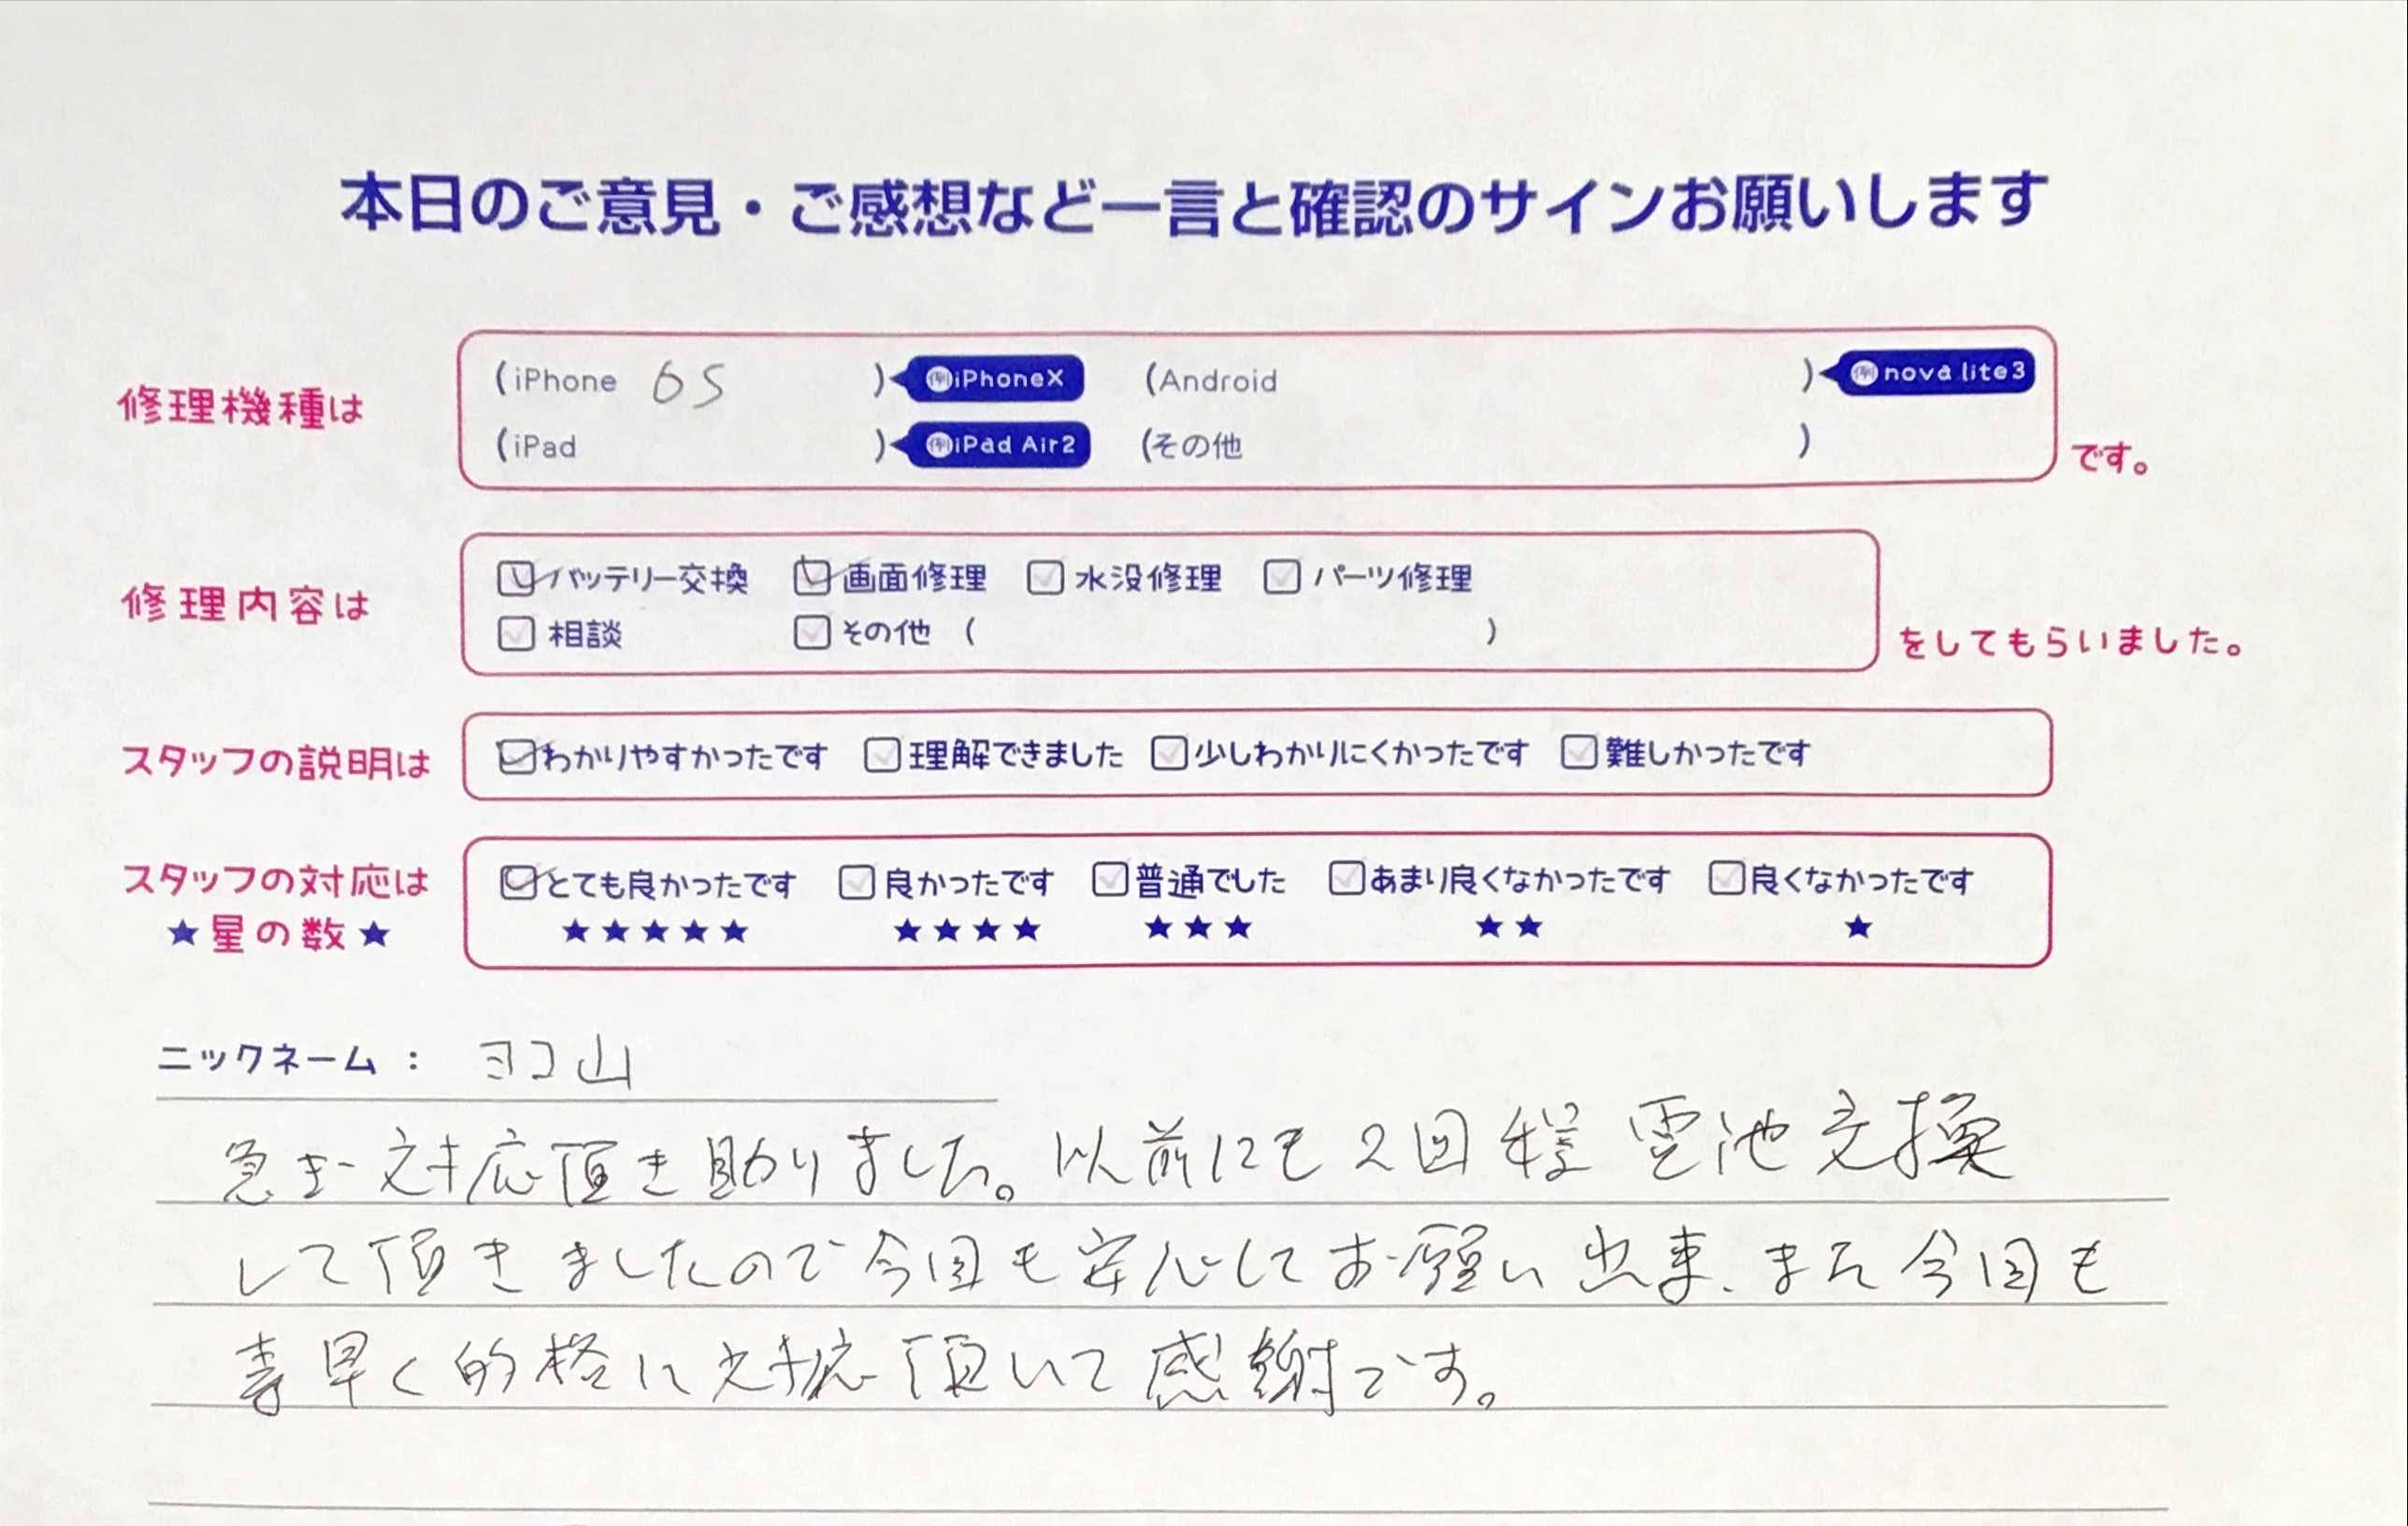 本日のご意見・ご感想など一言と確認のサインお願いします
修理機種は
(iPhone 6S ) 例iPhoneX (Android ) 例nova lite3
(iPad ) 例iPad Air2 (その他 ) です。
修理内容は
バッテリー交換 画面修理 水没修理 パーツ修理
相談 その他 ( ) をしてもらいました。
スタッフの説明は わかりやすかったです 理解できました 少しわかりにくかったです 難しかったです
スタッフの対応は とても良かったです 良かったです 普通でした あまり良くなかったです 良くなかったです
★星の数★ ★★★★★ ★★★★ ★★★ ★★ ★
ニックネーム : ヨコ山
急ぎ対応頂き助りました。以前にも2回程電池交換
して頂きましたので今回も安心してお願い出来、また今回も
素早く的格に対応頂いて感謝です。